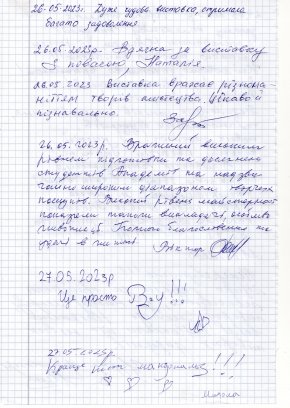 26.05.2023. Дуже чудова виставка, отримала
багато задоволення.
26.05.2023р. Вдячна за виставку
З повагою, Наталія.
26.05.2023 Виставка вражає різнома-
ніттям творів мистецтва. Цікаво й
пізнавально.
26.05.2023р. Вражений високим
рівнем підготовки та досягнень
студентів Академії та надзви-
чайно широким діапазоном творчих
пошуків. Високий рівень майстерності
показали також викладачі, особливо
живописці. Божого благословення та
удачі в житті
Віктор
27.05.2023р
Це просто Вау!!!
27.05.2023р.
Краще ніж мандрівка!!!